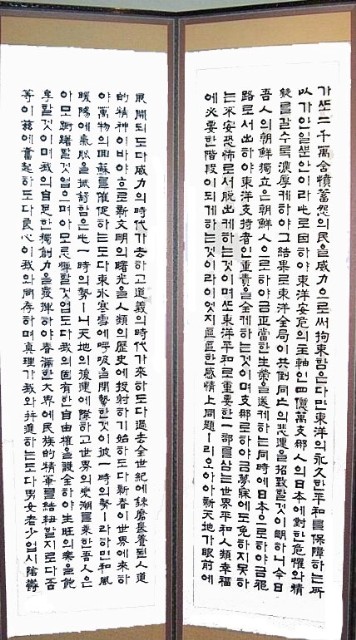 가또二千萬含憤蓄怨의民을威力으로써拘束함은다만東洋의永久한平和를保障하는所
以가안일뿐안이라此로因하야東洋安危의主軸인四億萬支那人의日本에對한危懼와猜
疑를갈수록濃厚케하야그結果로東洋全局이共倒同亡의悲運을招致할것이明하니今日
吾人의朝鮮獨立은朝鮮人으로하야금正當한生榮을遂케하는同時에日本으로하야금邪
路로서出하야東洋支持者인重責을全케하는것이며支那로하야금夢寐에도免하지못하
는不安恐怖로서脫出케하는것이며또東洋平和로重要한一部를삼는世界平和人類幸福
에必要한階段이되게하는것이라이엇지區區한感情上問題ㅣ리오아아新天地가眼前에
展開되도다威力의時代가去하고道義의時代가來하도다過去全世紀에鍊磨長養된人道
的精神이바야흐로新文明의曙光을人類의歷史에投射하기始하도다新春이世界에來하
야萬物의回蘇를催促하는도다凍氷寒雪에呼吸을閉蟄한것이彼一時의勢ㅣ라하면和風
暖陽에氣脈을振舒함은此一時의勢ㅣ니天地의復運에際하고世界의變潮를乘한吾人은
아모躕躇할것업으며아모忌憚할것업도다我의固有한自由權을護全하야生旺의樂을飽
享할것이며我의自足한獨創力을發揮하야春滿한大界에民族的精華를結紐할지로다吾
等이玆에奮起하도다良心이我와同存하며眞理가我와並進하는도다男女老少업시陰鬱